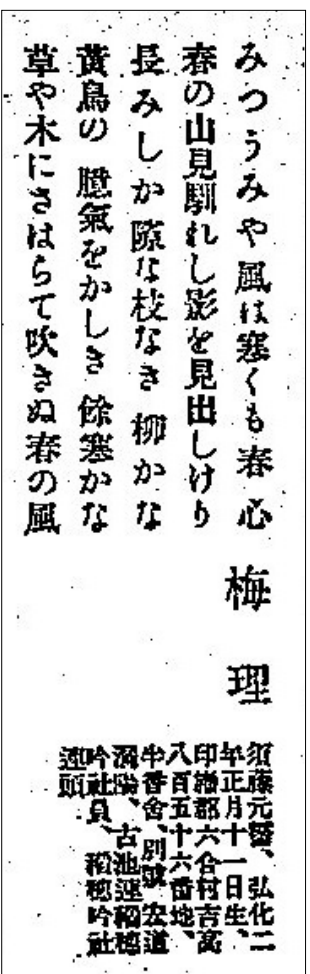 みつうみや風は寒くも春心
春の山見馴れし影を見出しけり
長みしか隙な枝なき柳かな
黄鳥の臆氣をかしき餘寒かな
草や木にさはらて吹きぬ春の風
梅理
須藤元誓、弘化二
年正月十一日生、
印旛郡六合村吉高
八百五十六番地、
半香舍、別號宏道
濶陽、古池連稻穗
吟社員、稻穗吟社
連頭